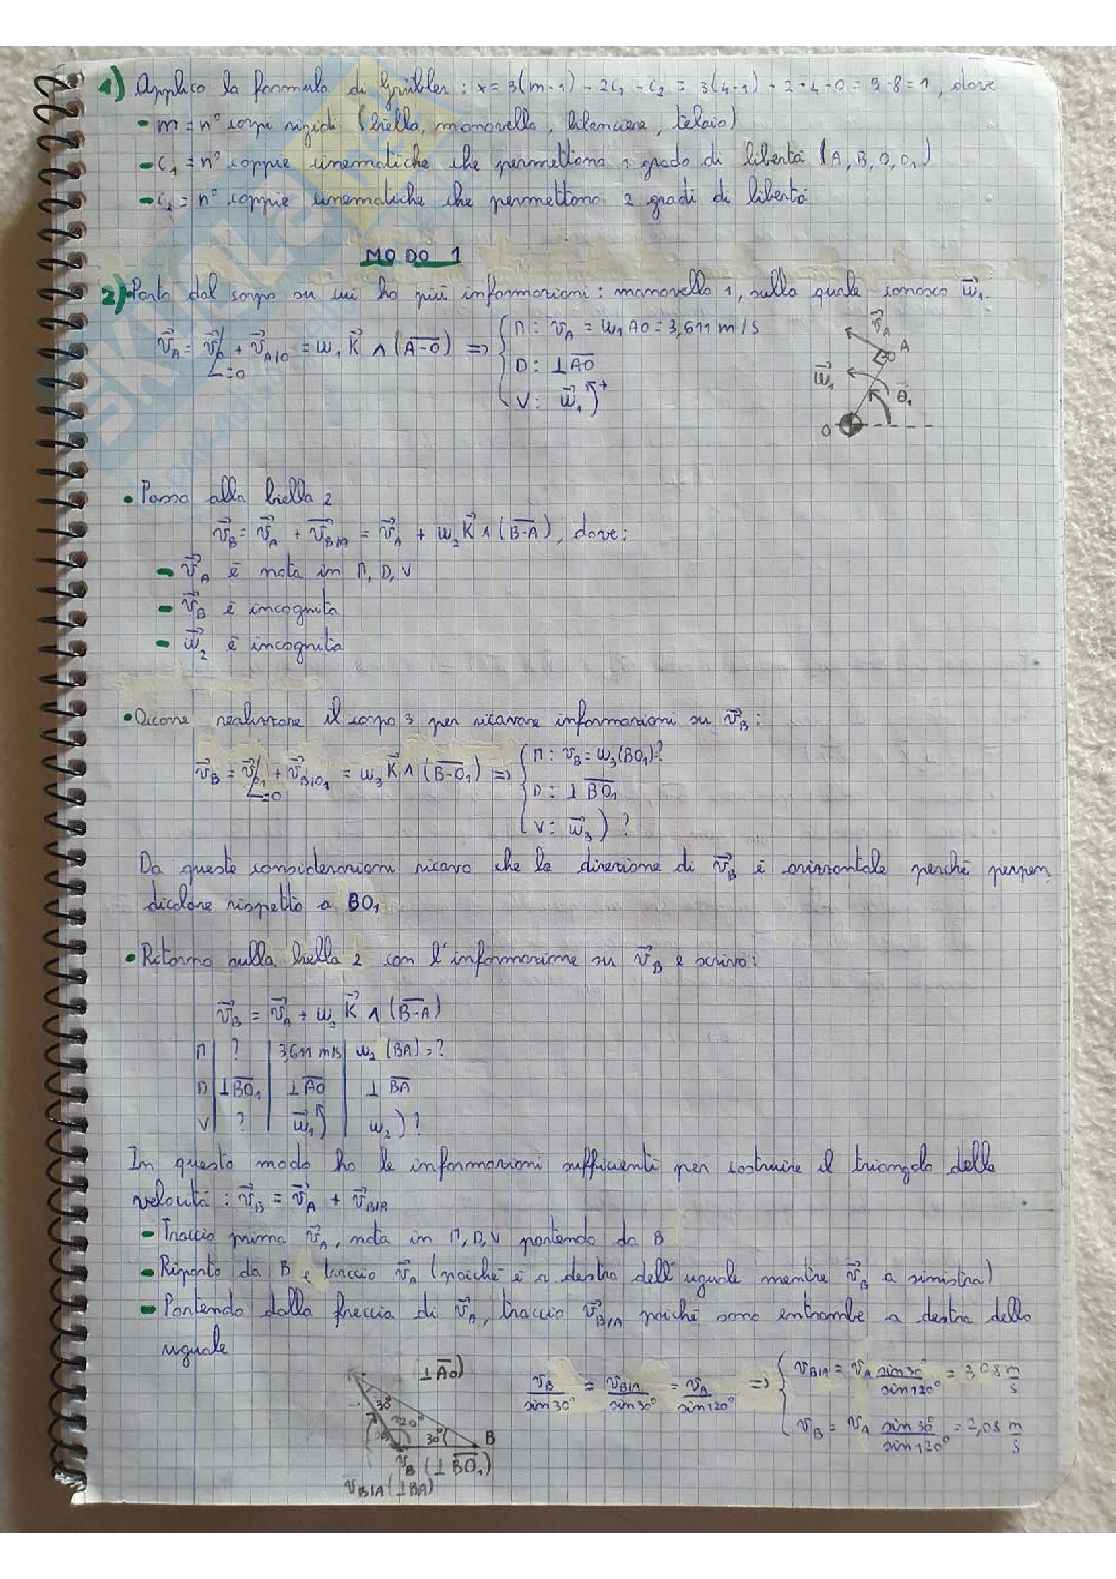 1) Applico la formula di Grübler: x = 3(m-1) - 2c₁ - c₂ = 3(4-1) - 2·4-0 = 9-8 = 1, dove
- m = n° corpi rigidi (biella, manovella, bilanciere, telaio)
- c₁ = n° coppie cinematiche che permettono 1 grado di libertà (A, B, O, O₁)
- c₂ = n° coppie cinematiche che permettono 2 gradi di libertà
MODO 1
2) • Parto dal corpo su cui ho più informazioni: manovella 1, sulla quale conosco w⃗₁.
v⃗A = v⃗O + v⃗A/O = w₁ K⃗ ∧ (A-O) => { M: vA = w₁ AO = 3,611 m/s
=0
D: ⊥ AO
V: w⃗₁)
v⃗A
A
w⃗₁
θ₁
O
• Passo alla biella 2
v⃗B = v⃗A + v⃗B/A = v⃗A + w₂ K⃗ ∧ (B-A), dove:
- v⃗A è nota in M, D, V
- v⃗B è incognita
- w⃗₂ è incognita
• Occorre realizzare il corpo 3 per ricavare informazioni su v⃗B:
v⃗B = v⃗O₁ + v⃗B/O₁ = w₃ K⃗ ∧ (B-O₁) => { M: vB = w₃(BO₁)=?
=0
D: ⊥ BO₁
V: w⃗₃) ?
Da queste considerazioni ricavo che la direzione di v⃗B è orizzontale perché perpen
dicolare rispetto a BO₁
• Ritorno sulla biella 2 con l'informazione su v⃗B e scrivo:
v⃗B = v⃗A + w₂ K⃗ ∧ (B-A)
M | ? | 3,611 m/s | w₂ (BA) = ?
D | ⊥BO₁ | ⊥AO | ⊥ BA
V | ? | w⃗₁) | w₂) ?
In questo modo ho le informazioni sufficienti per costruire il triangolo delle
velocità: v⃗B = v⃗A + v⃗B/A
- Traccio prima v⃗A, nota in M, D, V partendo da B
- Riparto da B e traccio v⃗B (poiché è a destra dell'uguale mentre v⃗B a sinistra)
- Partendo dalla freccia di v⃗A, traccio v⃗B/A poiché sono entrambe a destra dello
uguale
⊥AO)
30°
120°
30°
B
vB (⊥BO₁)
vB/A (⊥BA)
vB/sin30° = vB/A/sin30° = vA/sin120° => { vB/A = vA sin30°/sin120° = 2,08 m/s
vB = vA sin30°/sin120° = 2,08 m/s